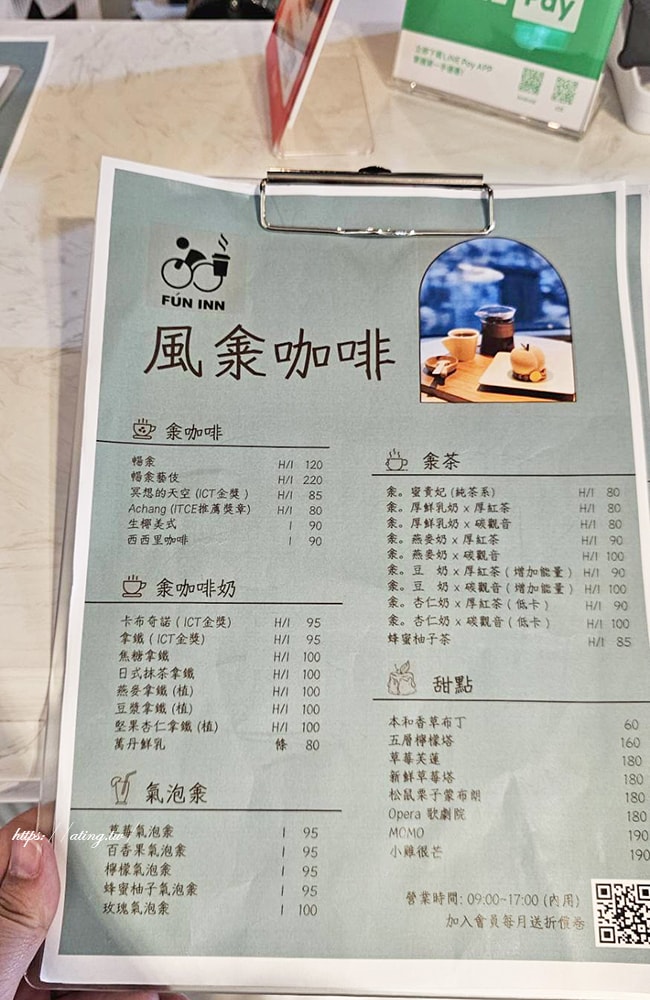 Pay
立即下載LINE Pay APP
FÚN INN
風汆咖啡
汆咖啡
暢汆 H/I 120
暢汆藝伎 H/I 220
冥想的天空 (ICT金獎) H/I 85
Achang (ITCE推薦獎章) H/I 80
生椰美式 I 90
西西里咖啡 I 90
汆咖啡奶
卡布奇諾 (ICT金獎) H/I 95
拿鐵 (ICT金獎) H/I 95
焦糖拿鐵 H/I 100
日式抹茶拿鐵 H/I 100
燕麥拿鐵 (植) H/I 100
豆漿拿鐵 (植) H/I 100
堅果杏仁拿鐵 (植) H/I 100
萬丹鮮乳 條 80
氣泡汆
草莓氣泡汆 I 95
百香果氣泡汆 I 95
檸檬氣泡汆 I 95
蜂蜜柚子氣泡汆 I 95
玫瑰氣泡汆 I 100
汆茶
汆。蜜貴妃 (純茶系) H/I 80
汆。厚鮮乳奶 x 厚紅茶 H/I 80
汆。厚鮮乳奶 x 碳觀音 H/I 80
汆。燕麥奶 x 厚紅茶 H/I 90
汆。燕麥奶 x 碳觀音 H/I 100
汆。豆 奶 x 厚紅茶 (增加能量) H/I 90
汆。豆 奶 x 碳觀音 (增加能量) H/I 100
汆。杏仁奶 x 厚紅茶 (低卡) H/I 90
汆。杏仁奶 x 碳觀音 (低卡) H/I 100
蜂蜜柚子茶 H/I 85
甜點
本和香草布丁 60
五層檸檬塔 160
草莓芙蓮 180
新鮮草莓塔 180
松鼠栗子蒙布朗 180
Opera 歌劇院 180
MOMO 190
小雞很芒 190
營業時間: 09:00~17:00 (內用)
加入會員每月送折價卷
https://ating.tw